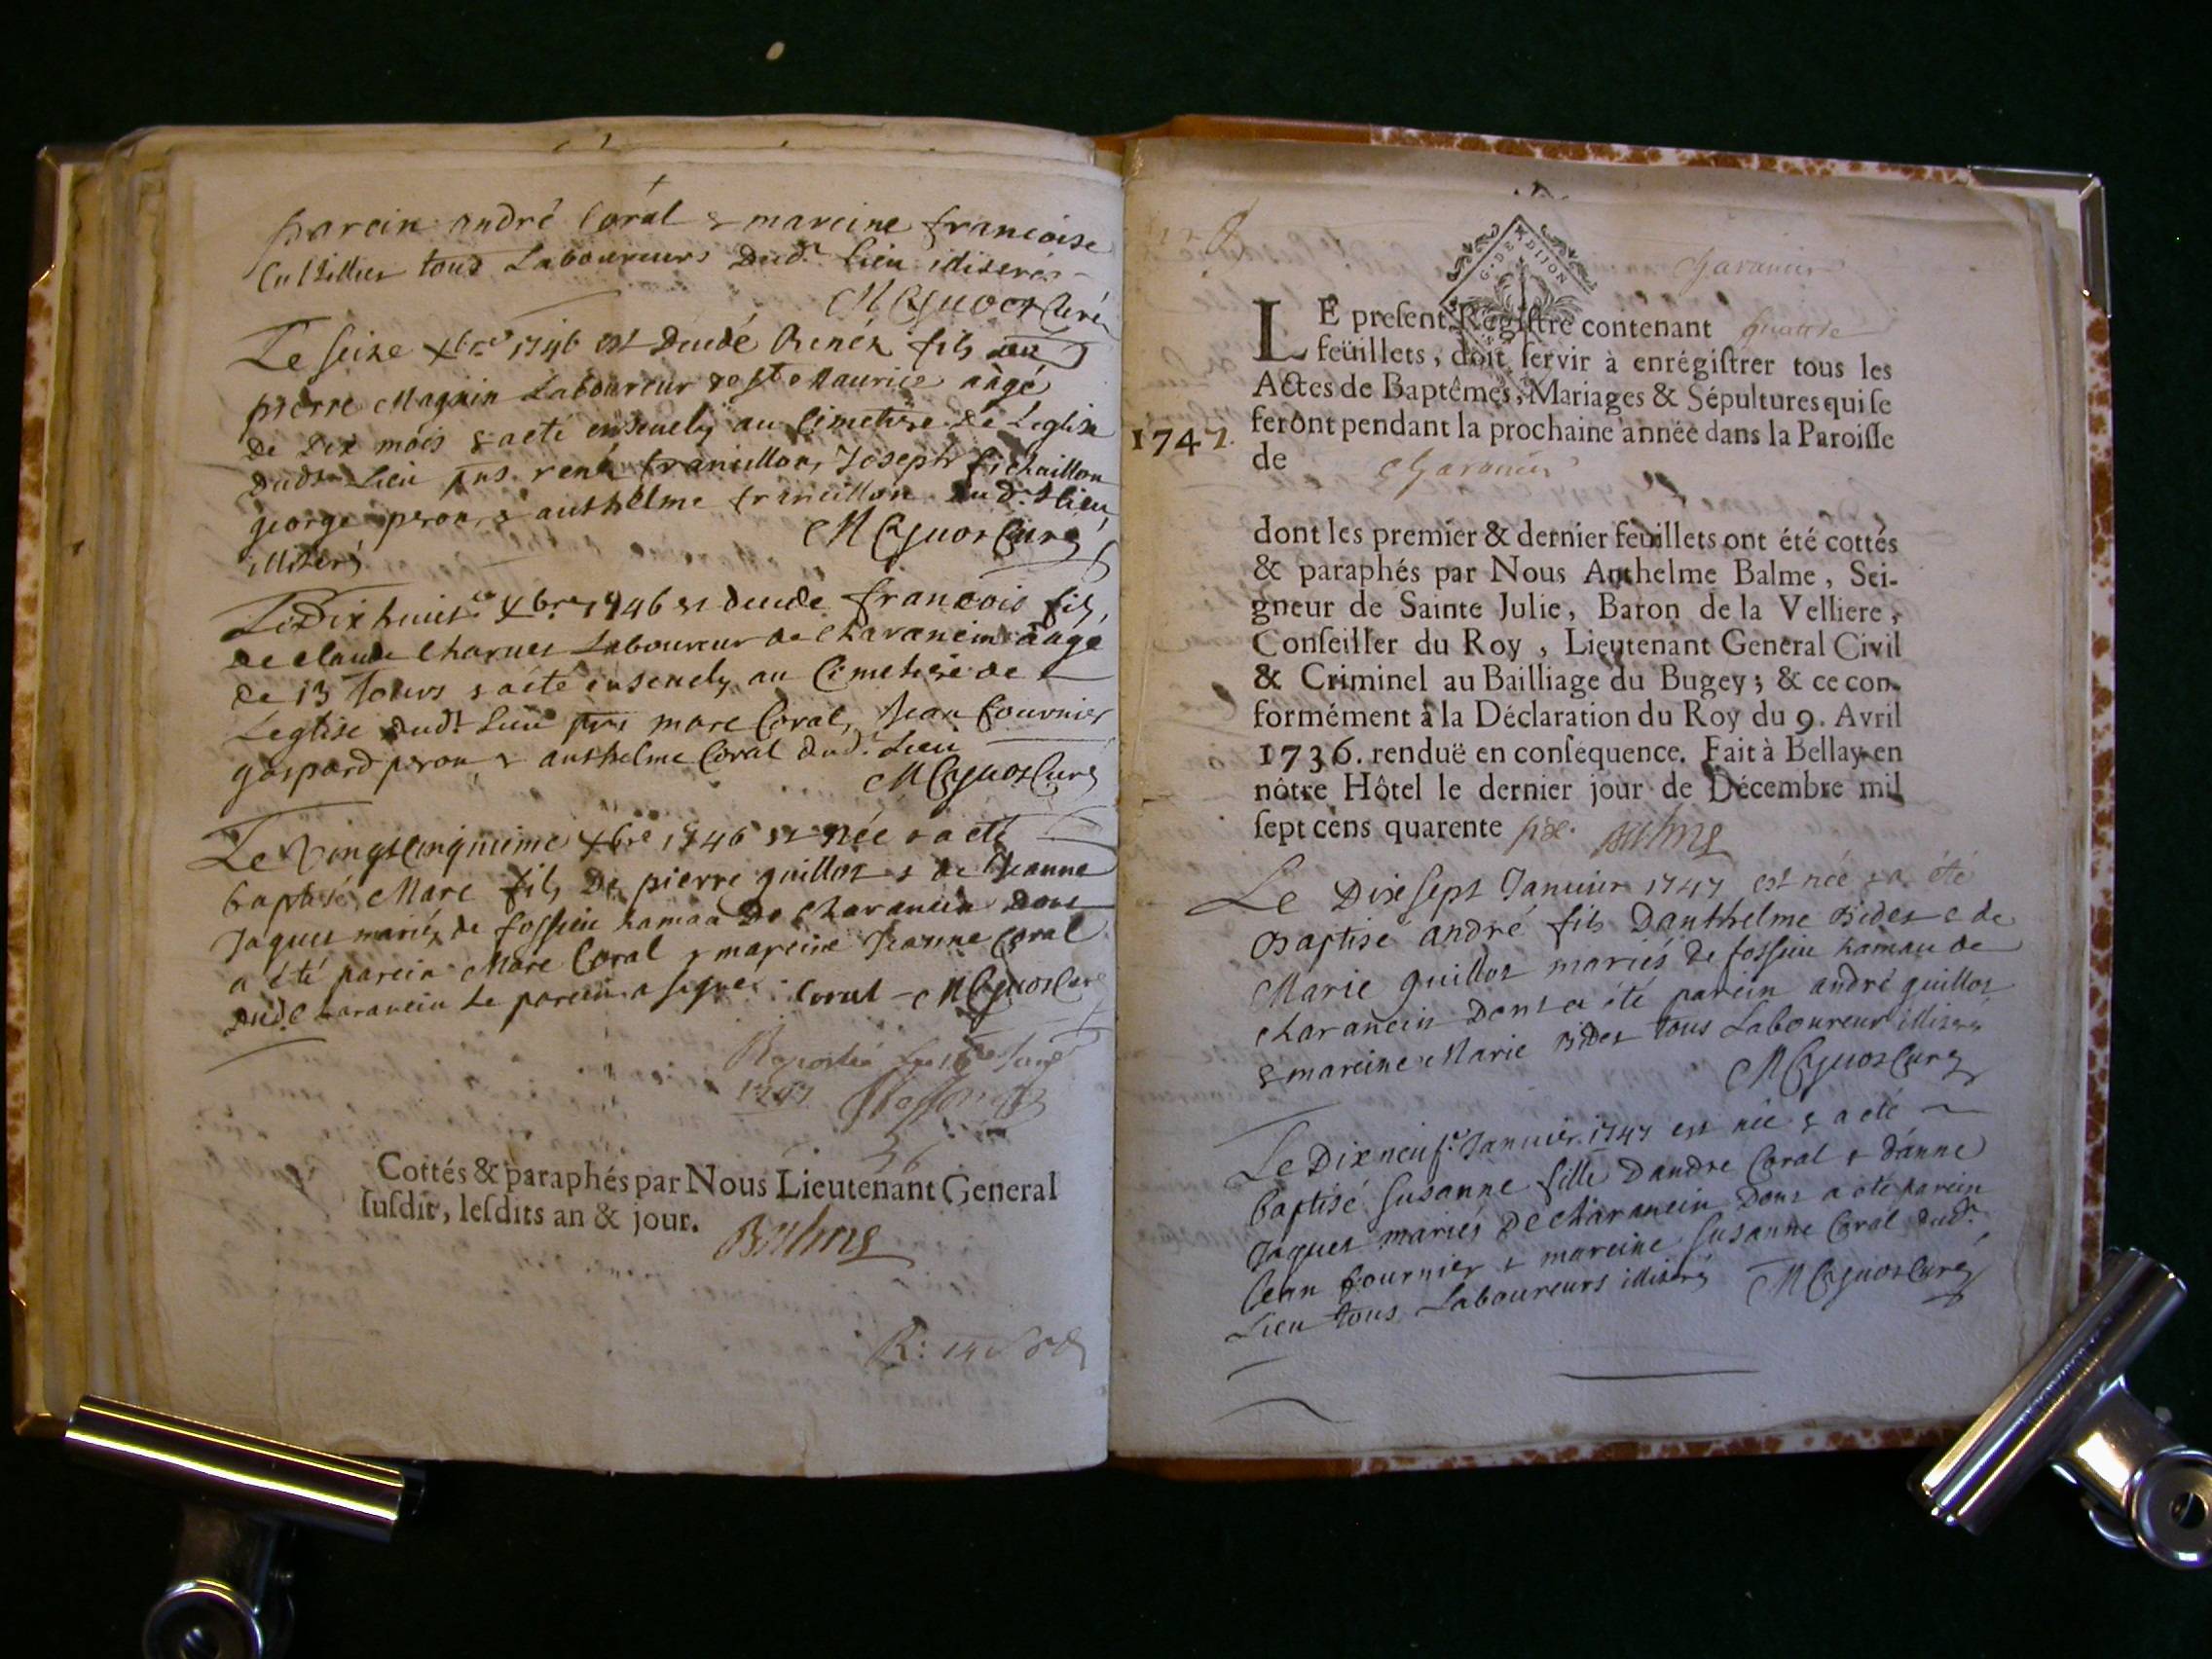 parein andré Coral & mareine francoise
Cultillier tous Laboureurs Dudt lieu illiserés
MCyuot Curé
Le seize xbre 1746 est Deudé Renéz fils de
pierre Magnin Laboureur de st Maurice aàgé
de Dix mois & a eté ensevely au Cimetiere de Leglise
dudt Lieu pns rené francillon, Joseph fichaillon
george peron, & anthelme francillon dudt lieu
illiserés MCyuot Curé
Le Dix huit xbre 1746 est deude francois fils
de claude Charuet Laboureur de Charancin aàgé
de 13 Jours & a eté ensevely au Cimetiere de
Leglise dudt Lieu pns marc Coral, Jean fournier
gaspard peron & anthelme Coral dudt Lieu
MCyuot Curé
Le Vingt Cinquieme xbre 1746 est née & a eté
baptisé Marc fils De pierre guillot & de Jeanne
Jaquet mariéz de fossieu hamau De Charancin Dont
a été parein Marc Coral & mareine Jeanne Coral
dudt Charancin Le parein a signé Coral MCyuot Curé
1747
Cottés & paraphés par Nous Lieutenant General
ſuſdit, leſdits an & jour. Balme
Charancin
G. DE DIJON
LE preſent Regiſtre contenant quatre
feüillets, doit ſervir à enrégiſtrer tous les
Actes de Baptêmes, Mariages & Sépultures qui ſe
feront pendant la prochaine année dans la Paroiſſe
1747.
de Charancin
dont les premier & dernier feuillets ont été cottés
& paraphés par Nous Anthelme Balme, Sei-
gneur de Sainte Julie, Baron de la Velliere,
Conſeiller du Roy, Lieutenant General Civil
& Criminel au Bailliage du Bugey; & ce con-
formément à la Déclaration du Roy du 9. Avril
1736. renduë en conſéquence. Fait à Bellay en
nôtre Hôtel le dernier jour de Décembre mil
ſept cens quarente six. Balme
Le Dix sept Janvier 1747 est née & a été
Baptisé andré fils Danthelme Bidet & de
Marie guillot mariés de fossieu hamau de
charancin Dont a été parein andré guillot
& mareine Marie Bidet tous Laboureur illiserés
MCyuot Curé
Le Dix neufe Janvier 1747 est née & a eté
baptisé Susanne fille Dandre Coral & d'anne
Jaquet mariés De Charancin Dont a eté parein
Jean fournier & mareine Susanne Coral dudt
Lieu tous Laboureurs illiserés MCyuot Curé